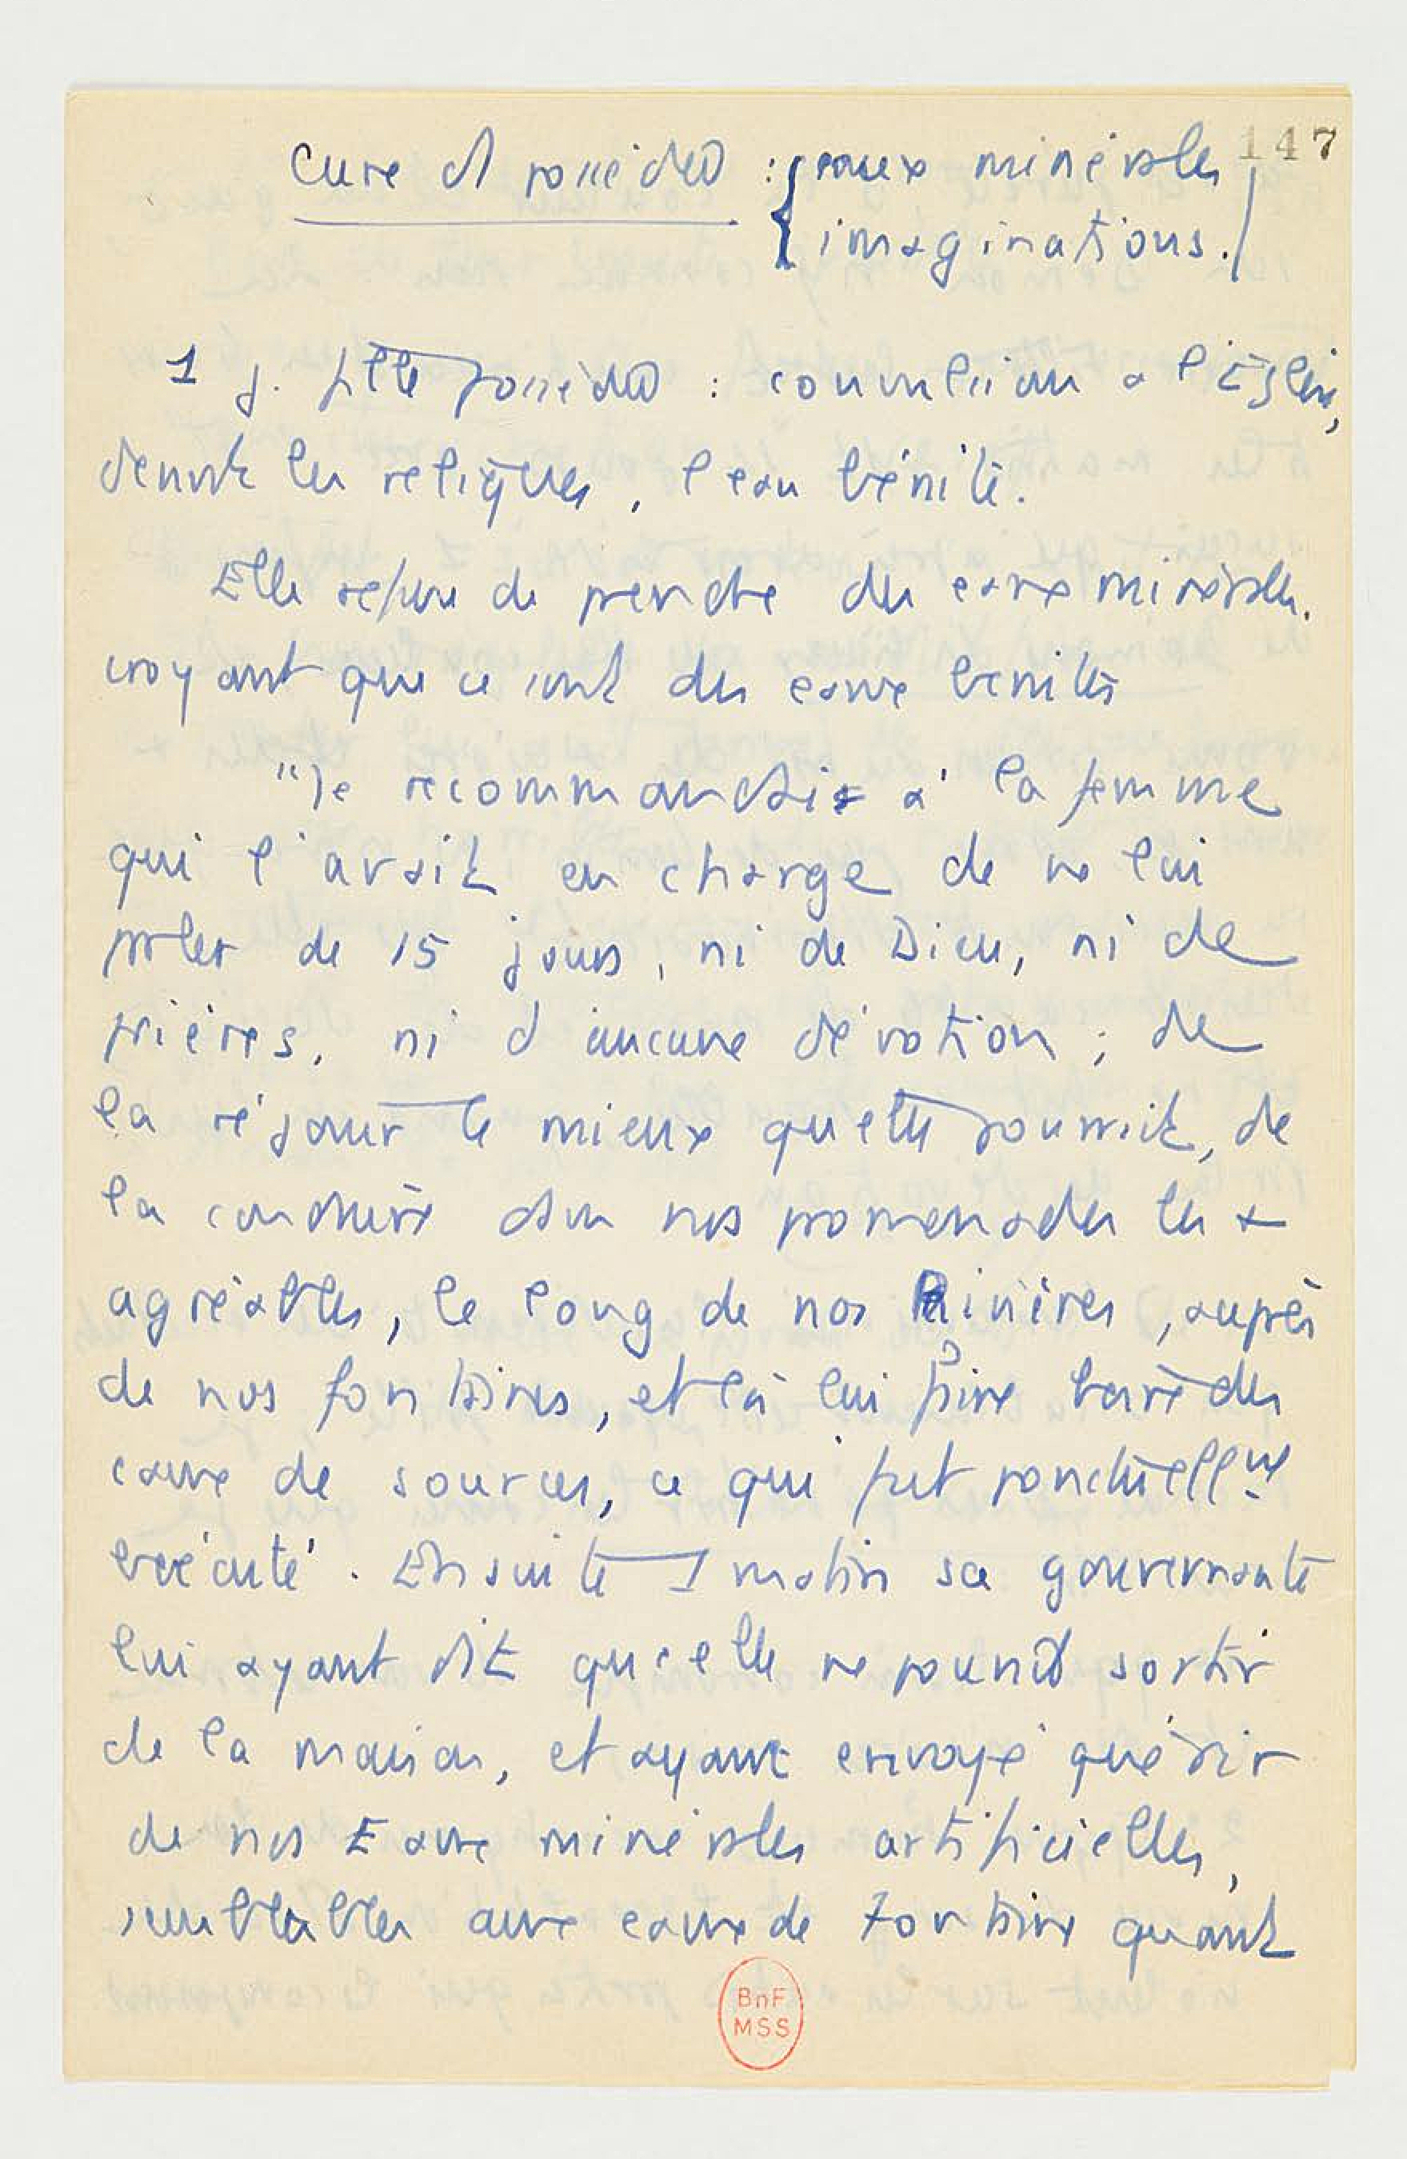 147
Cure d possédée : { eaux minérales
imaginations.
1 j. fille possédée : convulsion à l'Église,
devant les reliques, l'eau bénite.
Elle refuse de prendre des eaux minérales.
croyant que ce sont des eaux bénites
"Je recommandais à la femme
qui l'avait en charge de ne lui
parler de 15 jours, ni de Dieu, ni de
prières, ni d'aucune dévotion ; de
la réjouir le mieux qu'elle pourrait, de
la conduire dans nos promenades les +
agréables, le long de nos Rivières, auprès
de nos fontaines, et là lui faire boire des
eaux de sources, ce qui fut ponctuellmt
exécuté. Ensuite 1 matin sa gouvernante
lui ayant dit qu'elle ne pouvait sortir
de la maison, et ayant envoyé quérir
de nos Eaux minérales artificielles,
semblables aux eaux de Fontaine quant
BnF
MSS